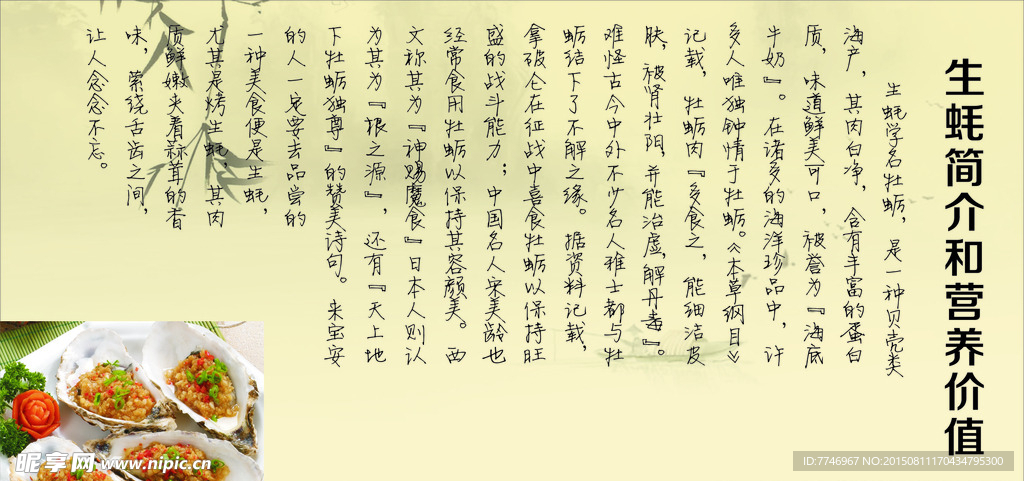 生蚝简介和营养价值
生蚝学名牡蛎，是一种贝壳类
海产，其肉白净，含有丰富的蛋白
质，味道鲜美可口，被誉为『海底
牛奶』。在诸多的海洋珍品中，许
多人唯独钟情于牡蛎。《本草纲目》
记载，牡蛎肉『多食之，能细洁皮
肤，被肾壮阳，并能治虚，解丹毒』。
难怪古今中外不少名人雅士都与牡
蛎结下了不解之缘。据资料记载，
拿破仑在征战中喜食牡蛎以保持旺
盛的战斗能力；中国名人宋美龄也
经常食用牡蛎以保持其容颜美。西
文称其为『神赐魔食』日本人则认
为其为『根之源』，还有『天上地
下牡蛎独尊』的赞美诗句。来宝安
的人一定要去品尝的
一种美食便是生蚝，
尤其是烤生蚝，其肉
质鲜嫩夹着蒜茸的香
味，萦绕舌齿之间，
让人念念不忘。
昵享网 www.nipic.cn
ID:7746967 NO:20150811170434795300